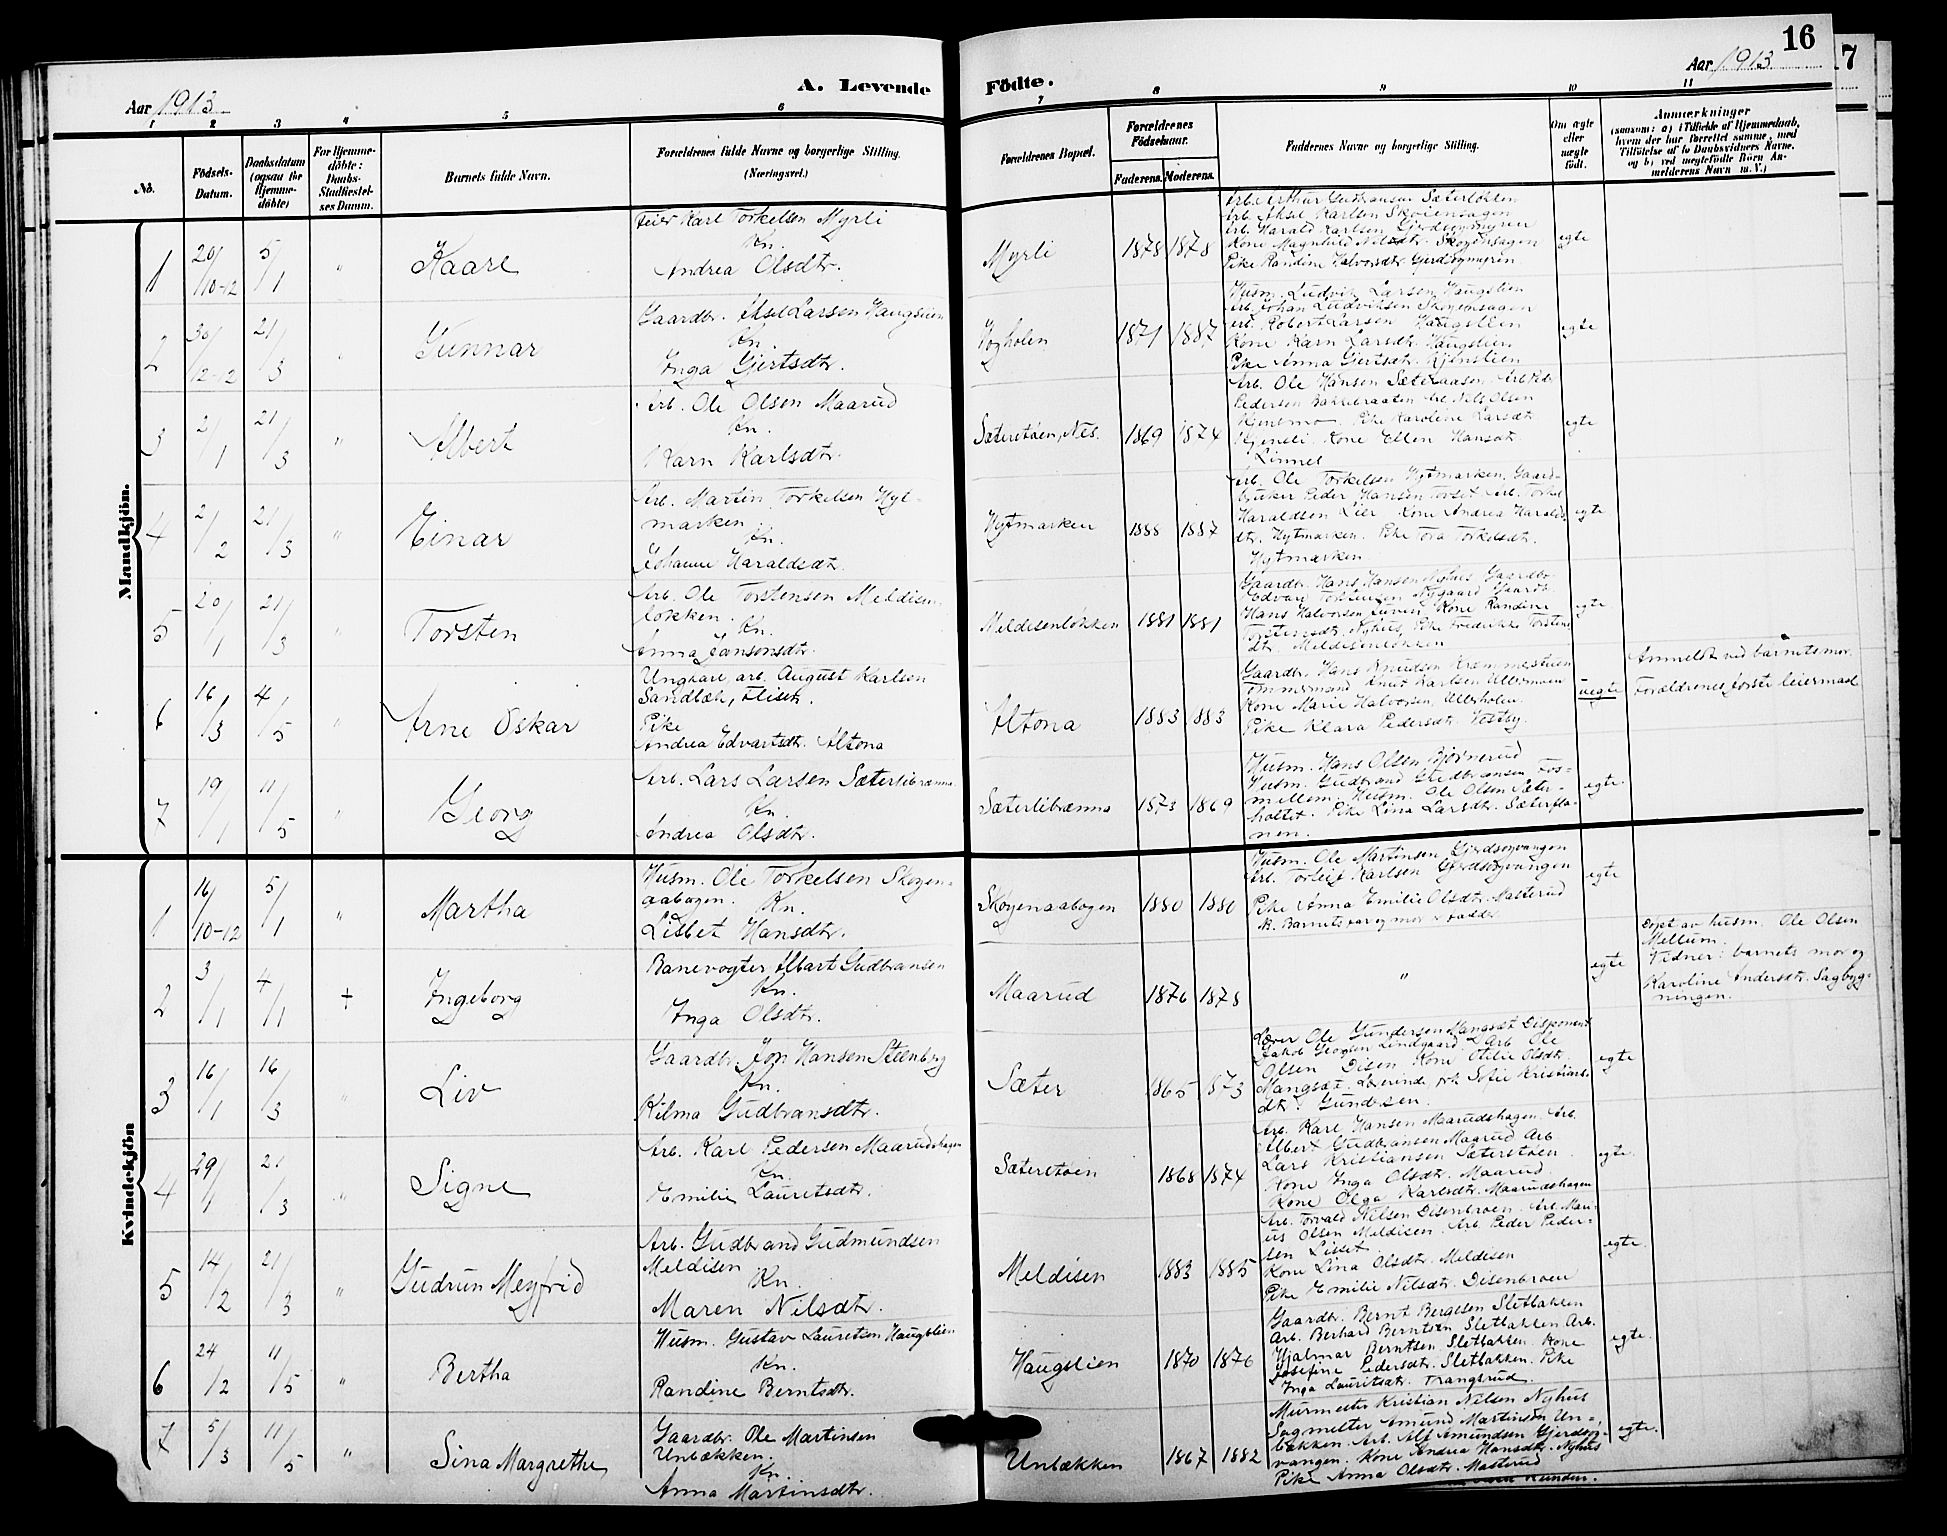 16
17
Aar 1913
A. Levende Födte.
Aar 1913
1 2 3 4 5 6 7 8 9 10 11
No.
Födsels-
Datum.
Daabsdatum
(ogsaa for
Hjemme-
döbte)
For Hjemme-
döbte:
Daabs-
Stadfæstel-
ses Datum.
Barnets fulde Navn.
Forældrenes fulde Navne og borgerlige Stilling.
(Næringsvei.)
Forældrenes Bopæl.
Forældrenes
Födselsaar.
Faderens. Moderens.
Faddernes Navne og borgerlige Stilling.
Om ægte
eller
uægte
født.
Anmærkninger
(saasom: a) i Tilfælde af Hjemmedaab,
hvem der har forrettet samme, med
Tilföielse af to Daabsvidners Navne,
og b) ved uegtefödte Börn An-
melderens Navn m. V.)
Mandkjön.
1 20/10-12 5/1 " Kaare
Feier Karl Torkelsen Myrli
Kn.
Andrea Olsdtr.
Myrli 1878 1878
Arb. Arthur Gudbransen Sæterløkken
Arb. Aksel Karlsen Skoiensagen
Arb. Harald Karlsen
Kone Magnhild Nilsdtr. Skogensagen
Pike Randine Halvorsdtr.
egte
2 30/12-12 21/3 " Gunnar
Gaardbr. Aksel Larsen Haugslien
Kn.
Inga Gjertsdtr.
1871 1887
Husm. Ludvik Larsen Haugslien
Arb. Johan Ludviksen Skogensagen
Arb. Robert Larsen Haugslien
Kone Karn Larsdtr. Haugslien
Pike Anna Gjertsdtr. Kjenslien
egte
3 2/1 21/3 " Albert
Arb. Ole Olsen Maarud
Kn.
Karn Karlsdtr.
Sæterstøen, Nes. 1869 1874
Arb. Ole Hansen Sæteraasen. Arb. Peder
Pedersen Bakkebraaten Arb. Nils Olsen
Pike Karoline Larsdtr.
Kone Ellen Hansdtr.
Linnes
egte
4 2/2 21/3 " Einar
Arb. Martin Torkelsen Hyt-
marken
Kn.
Johanne Haraldsdtr.
Hytmarken 1888 1887
Arb. Ole Torkelsen Hytmarken, Gaard-
bruker Peder Hansen Torset. Arb. Torkel
Haraldsen Lier. Kone Andrea Haralds-
dtr. Hytmarken. Pike Tora Torkelsdtr.
Hytmarken
egte
5 20/1 21/3 " Torsten
Arb. Ole Torstensen Meldisen-
løkken.
Kn.
Anna Jonsonsdtr.
Meldisenløkken 1881 1881
Gaardbr. Hans Hansen Nyhus Gaardbr.
Edvart Torstensen Nygaard Gaardb.
Hans Halvorsen Kone Randine
Torstensdtr. Nyhus, Pike Fredrikke Torstens
dtr. Meldisenløkken
egte
6 16/3 4/5 " Arne Oskar
Ungkarl, arb. August Karlsen
Sandbæk,
Pike
Andrea Edvartsdtr. Altona
Altona 1883 1883
Gaardbr. Hans Knudsen
Tømmermand Knut Karlsen Ullersmoen
Kone Marie Halvorsen, Ullersholen.
Pike Klara Pedersdtr. Vestby.
uegte
Anmeldt ved barnets mor.
Forældrenes første leiermaal
7 19/1 11/5 " Georg
Arb. Lars Larsen Sæterlibrænna
Kn.
Andrea Olsdtr.
Sæterlibrænna 1873 1869
Husm. Hans Olsen Bjørnerud
Husm. Gudbrand Gudbransen Fos-
mellem, Husm. Ole Olsen Sæter-
holtet. Pike Lina Larsdtr. Sæterfla-
nen.
egte.
Kvindekjön
1 16/10-12 5/1 " Martha
Husm. Ole Torkelsen Skogen-
aabogen. Kn.
Lisbet Hansdtr.
Skogenaabogen 1880 1880
Husm. Ole Martinsen Gjerdsogvangen
Arb. Torleif Karlsen Gjerdsogvangen
Pike Anna Emilie Olsdtr. Masterud
K. Barnets far og mor s. faddr.
egte
2 3/1 4/1 + Ingeborg
Banevogter Albart Gudbransen
Kn.
Inga Olsdtr.
Maarud 1876 1878
"
egte
Døpt av husm. Ole Olsen
Mellum.
Vidner: barnets mor og
Karoline Andersdtr. Sagbyg-
ningen.
3 16/1 16/3 " Liv
Gaardbr. Jon Hansen Steenberg
Kn.
Kilma Gudbransdtr.
Sæter 1865 1873
Lærer Ole Gundersen Mangsæt Disponent
Jakob Georgsen Lindgaard, arb. Ole
Olsen Disen. Kone Otilie Olsdtr.
Mangsæt. Lærerinde frk Sofie Kristians-
dtr. Gundersen.
egte
4 29/1 21/3 " Signe
Arb. Karl Pedersen Maarudshagen
Kn.
Emilie Lauretsdtr.
Sæterstøen 1868 1874
Arb. Karl Hansen Maarudshagen. Arb.
Albert Gudbransen Maarud Arb.
Lars Kristiansen Sæterstøen
Kone Inga Olsdtr. Maarud
Kone Olga Karlsdtr. Maarudshagen
egte.
5 14/2 21/3 " Gudrun Meyfrid
Arb. Gudbrand Gudmundsen
Meldisen
Kn.
Maren Nilsdtr.
Meldisen 1883 1885
Arb. Torvald Nilsen Disenbroen. Arb. Mari-
us Olsen Meldisen. Arb. Peder Peder-
sen Lisset
Kone Lina Olsdtr. Meldisen
Pike Emilie Nilsdtr. Disenbroen
egte.
6 24/2 11/5 " Bertha
Husm. Gustav Lauretsen Haugslien
Kn.
Randine Berntsdtr.
Haugslien 1870 1876
Gaardbr. Bernt Bergesen Sletbakken
Arb. Berhard Berntsen Sletbakken Arb.
Hjalmar Berntsen. Sletbakken. Kone
Josefine Pedersdtr. Sletbakken. Pike
Inga Lauritsdtr. Trangsrud.
egte.
7 5/3 11/5 " Sina Margrethe
Gaardbr. Ole Martinsen
Unbækken.
Kn.
Anna Martinsdtr.
Unbækken 1867 1882
Murmester Kristian Nilsen Nyhus
Sagmester Amund Martinsen Un-
bakken. Arb. Alf Amundsen Gjerdsog-
vangen. Kone Andrea Hansdtr. Nyhus
Pike Anna Olsdtr. Masterud
egte.